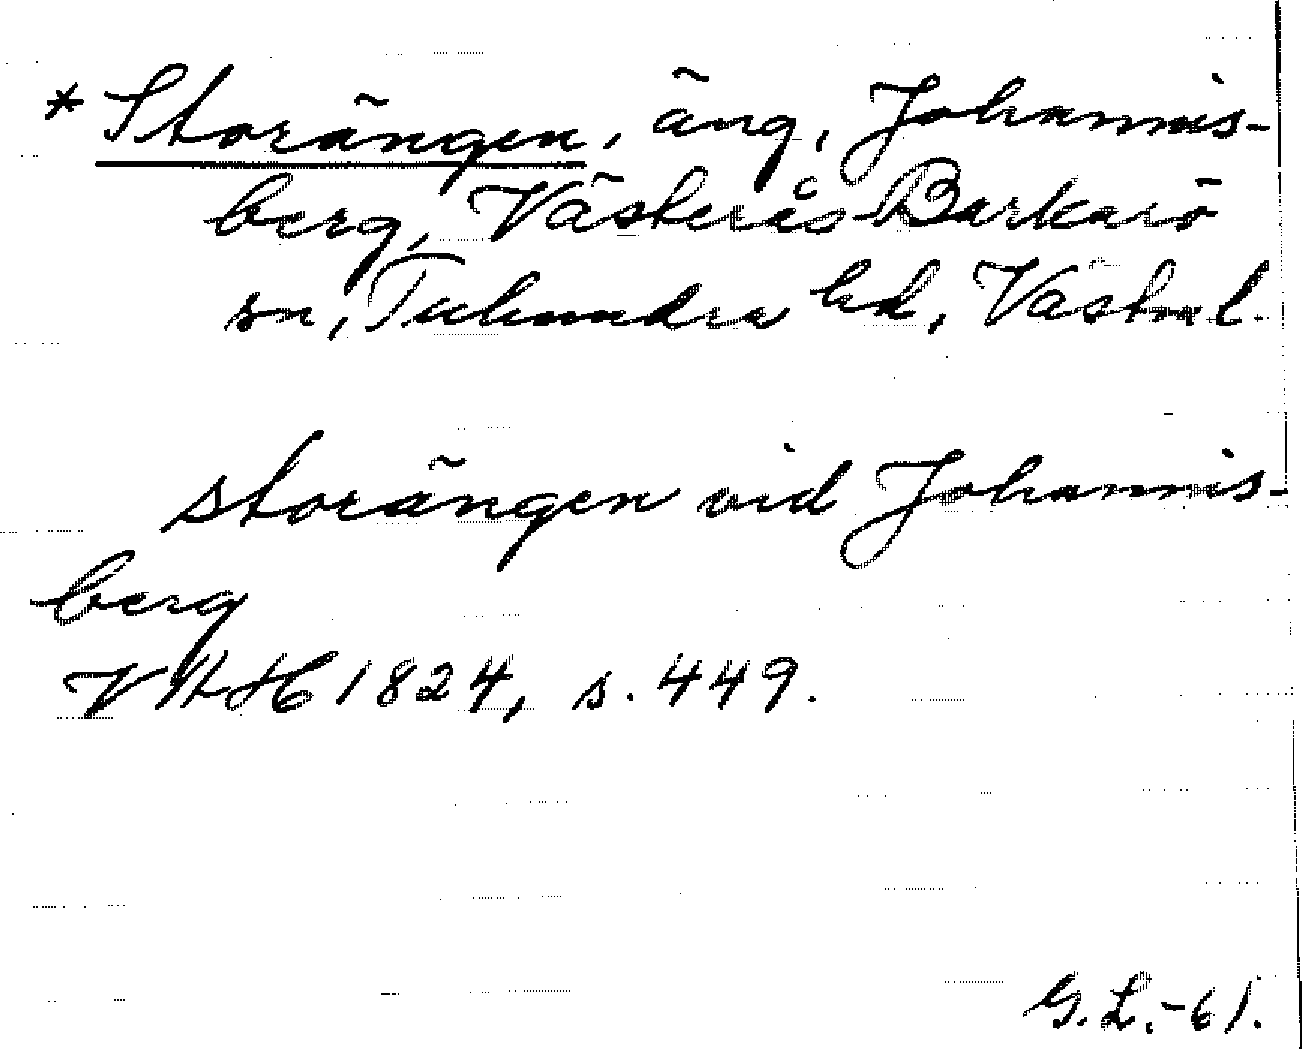 * Storängen, äng, Johannis-
berg, Västerås-Barkarö
sn, Tuhundra hd, Västml.
storängen vid Johannis-
berg
VHH 1824, s. 449.
G.L.-61.